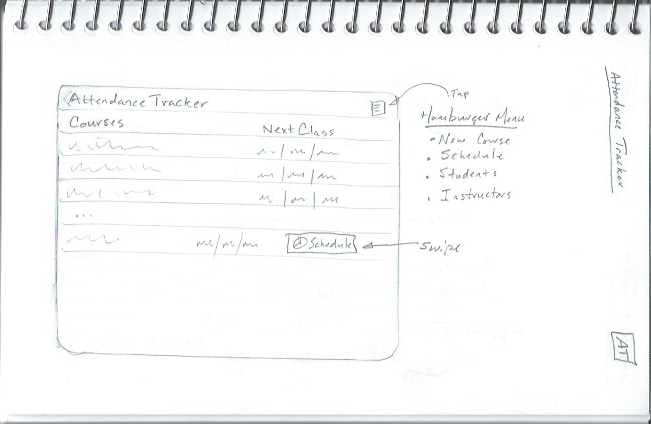 Attendance Tracker
Courses
Next Class
...
Schedule
Tap
Hamburger Menu
- New Course
• Schedule
• Students
• Instructors
Swipe
Attendance Tracker
AT